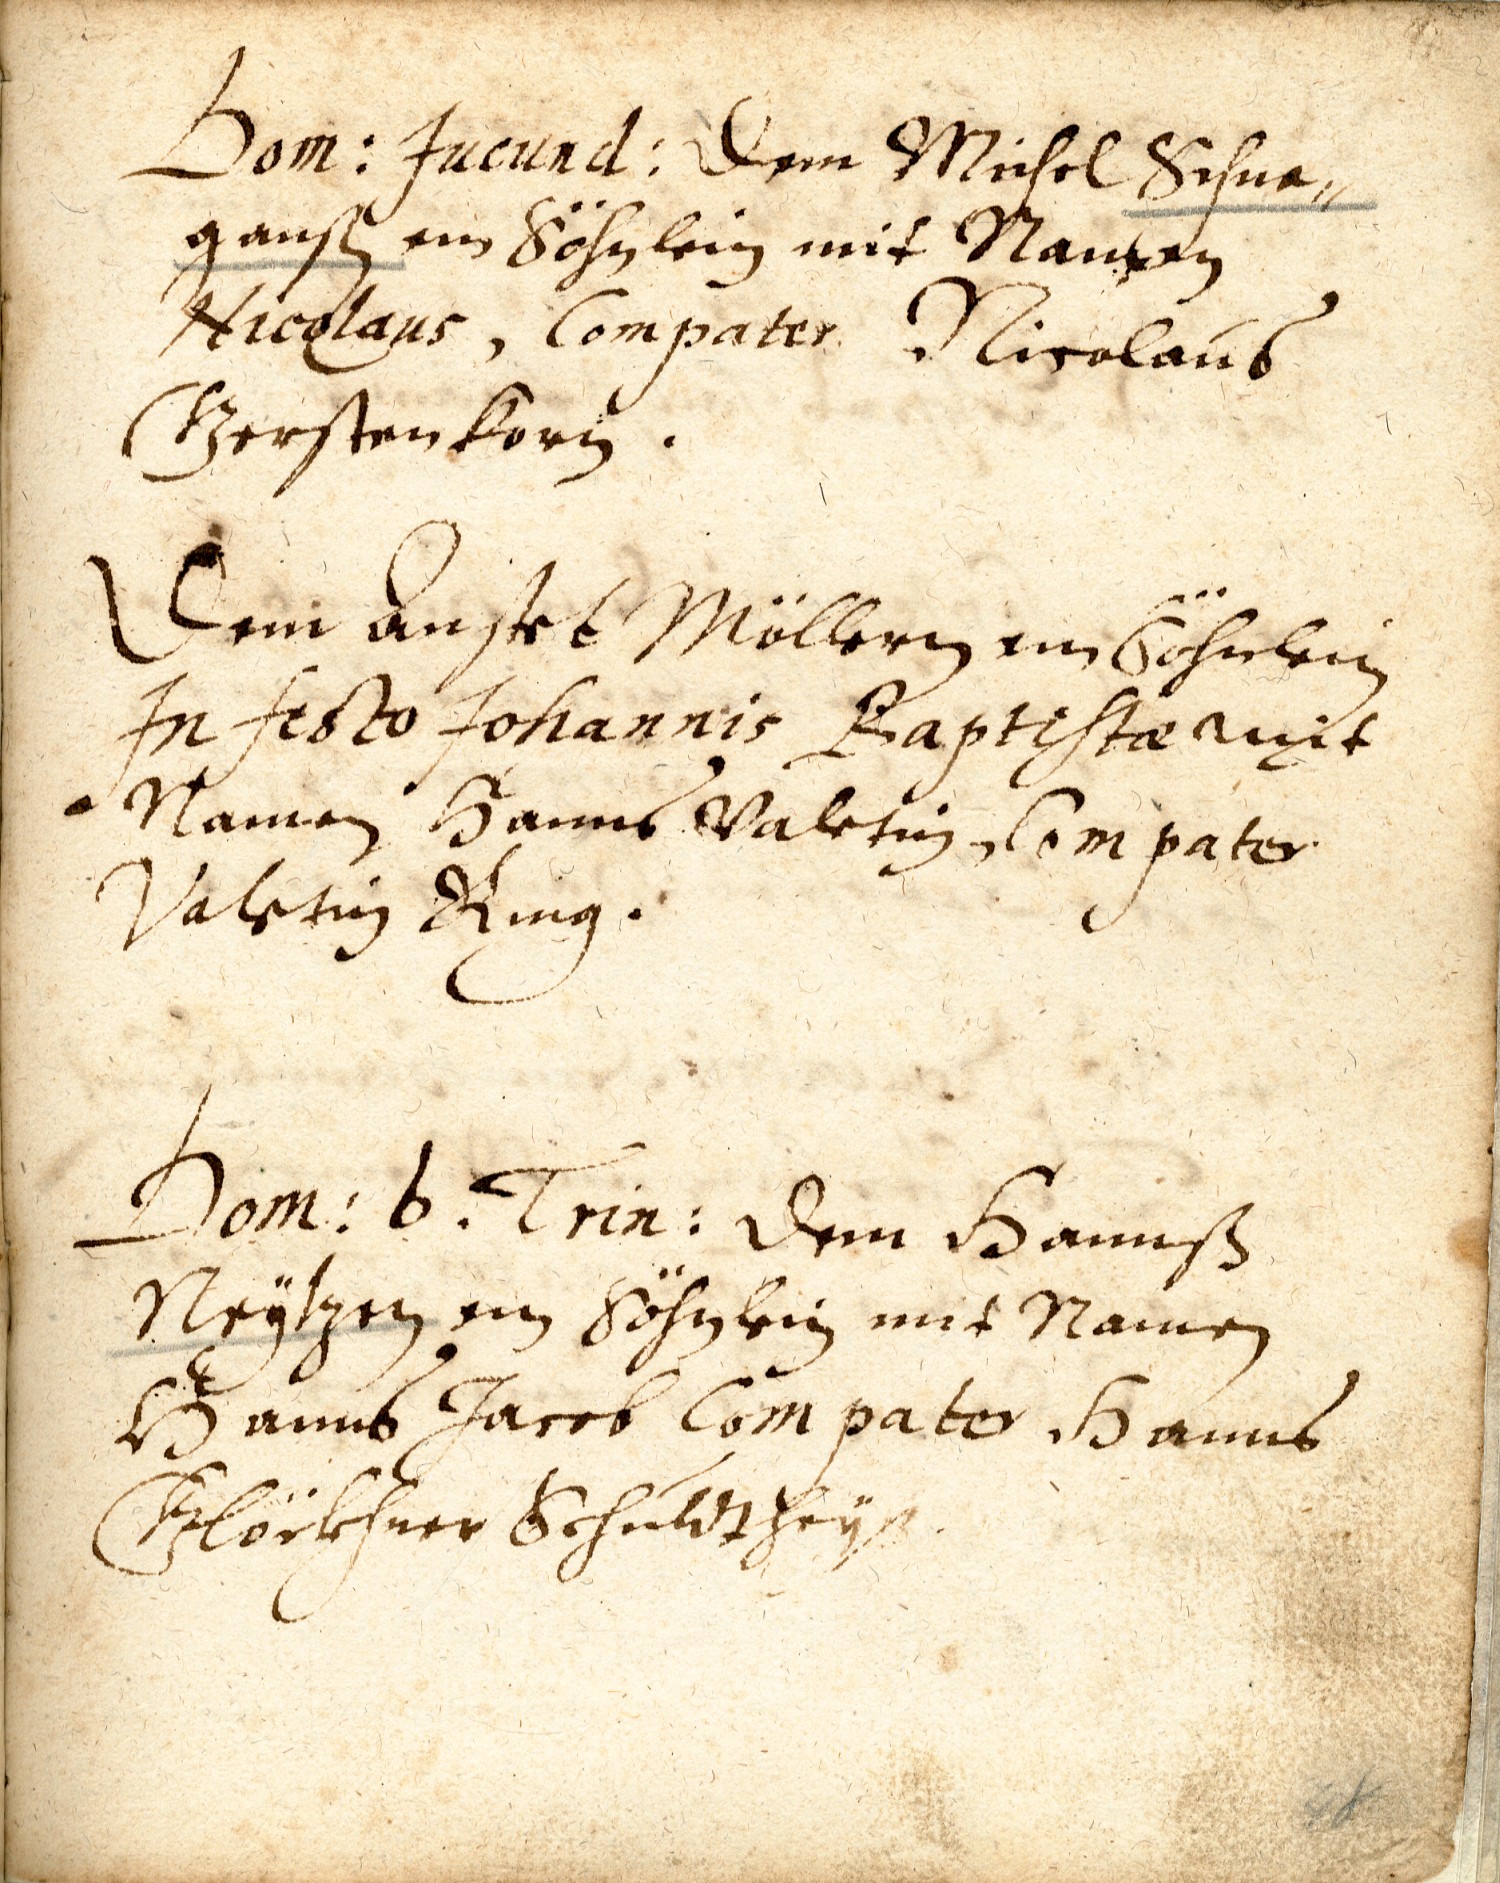 Dom: Jucund: Dem Michel Schne„
ganß ein Söhnlein mit Namen
Nicolaus, Compater Nicolaus
Gerstenkorn.
Dem Möllern ein Söhnlein
In festo Johannis Baptistæ mit
Namen Hanns Valetin, Compater
Valetin Ring.
Dom: 6. Trin: Dem Hannß
Neytzen ein Söhnlein mit Namen
Hanns Jacob Compater Hanns
Glöckhner Schuldtheyß.
48